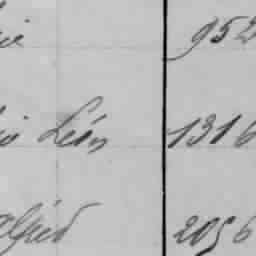 952
Léon 1316
Alfred 2056